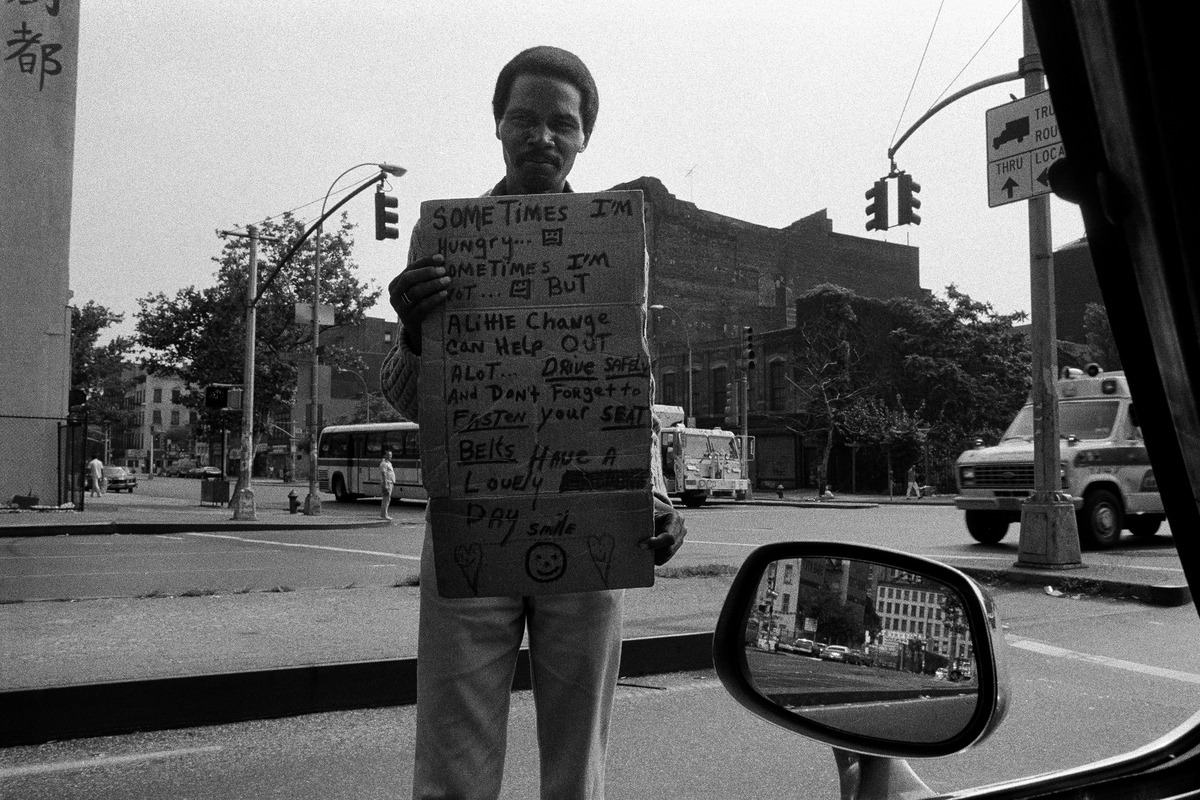 都
SOMETIMES I'M
HUNGRY...
SOMETIMES I'M
NOT... BUT
A LittlE Change
CAN HElp OUT
ALOT... DRIVE SAFEly
AND DON'T FORGET to
FASTEN your SEAT
BElts HAVE A
LOVEly
DAY smilE
TRU
ROU
THRU LOCA